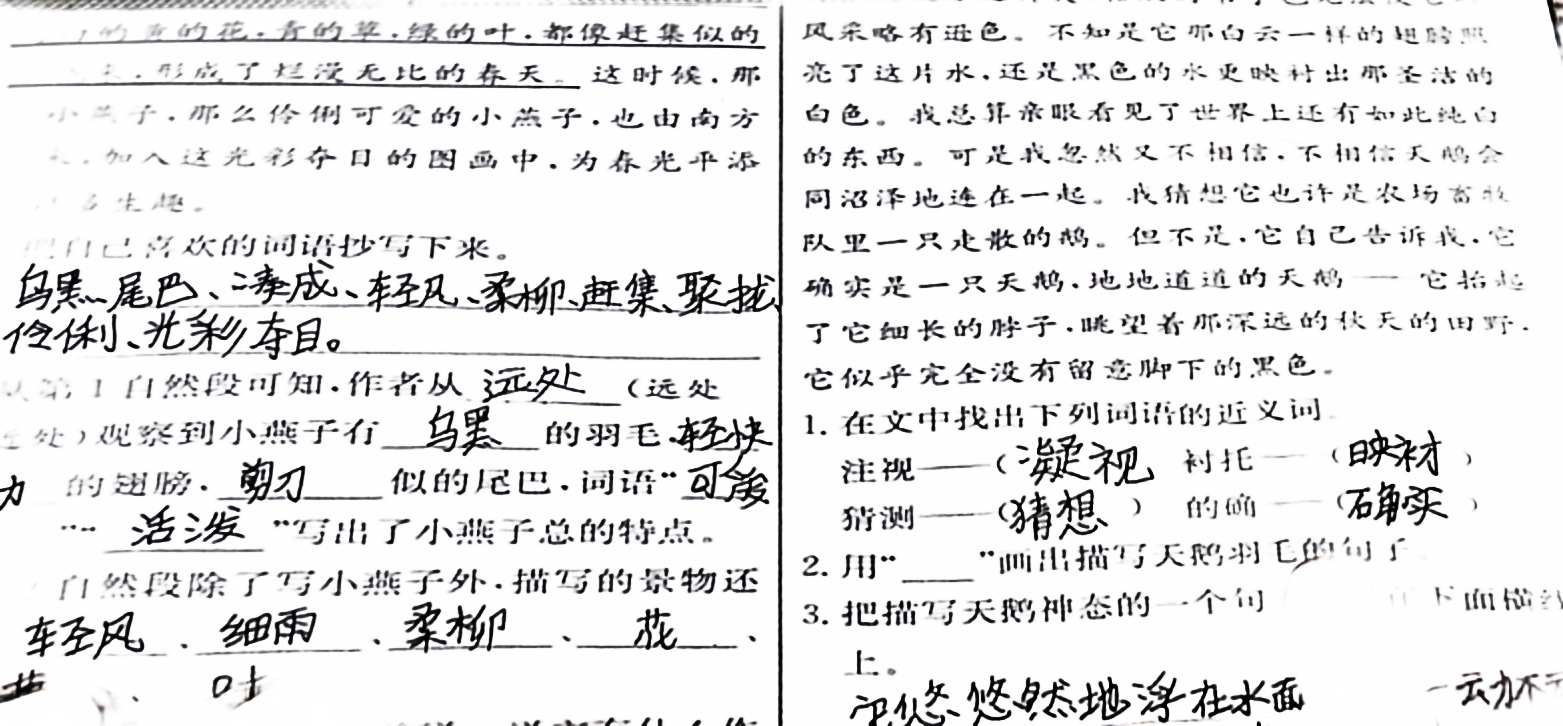 的黄的花,青的草,绿的叶,都像赶集似的
形成了烂漫无比的春天。这时候,那
小燕子,那么伶俐可爱的小燕子,也由南方
加入这光彩夺目的图画中,为春光平添
生趣。
把自己喜欢的词语抄写下来。
乌黑、尾巴、凑成、轻风、柔柳、赶集、聚拢
伶俐、光彩夺目。
从第1自然段可知,作者从 远处 (远处
处)观察到小燕子有 乌黑 的羽毛,轻快
的翅膀, 剪刀 似的尾巴,词语“可爱
”“ 活泼 ”写出了小燕子总的特点。
自然段除了写小燕子外,描写的景物还
轻风 、 细雨 、 柔柳 、 花 、
、 叶
风采略有逊色。不知是它那白云一样的翅膀照
亮了这片水,还是黑色的水更映衬出那圣洁的
白色。我总算亲眼看见了世界上还有如此纯白
的东西。可是我忽然又不相信,不相信天鹅会
同沼泽地连在一起。我猜想它也许是农场畜牧
队里一只走散的鹅。但不是,它自己告诉我,它
确实是一只天鹅,地地道道的天鹅——它抬起
了它细长的脖子,眺望着那深远的秋天的田野,
它似乎完全没有留意脚下的黑色。
1. 在文中找出下列词语的近义词
注视——(凝视 衬托——(映衬)
猜测——(猜想) 的确——(确实)
2. 用“____”画出描写天鹅羽毛的句子
3. 把描写天鹅神态的一个句 在下面横线
上。
悠悠然地浮在水面 一动不